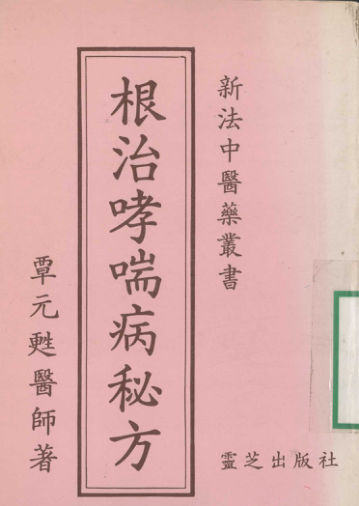 新法中醫藥叢書
根治哮喘病秘方
覃元甦醫師著
靈芝出版社